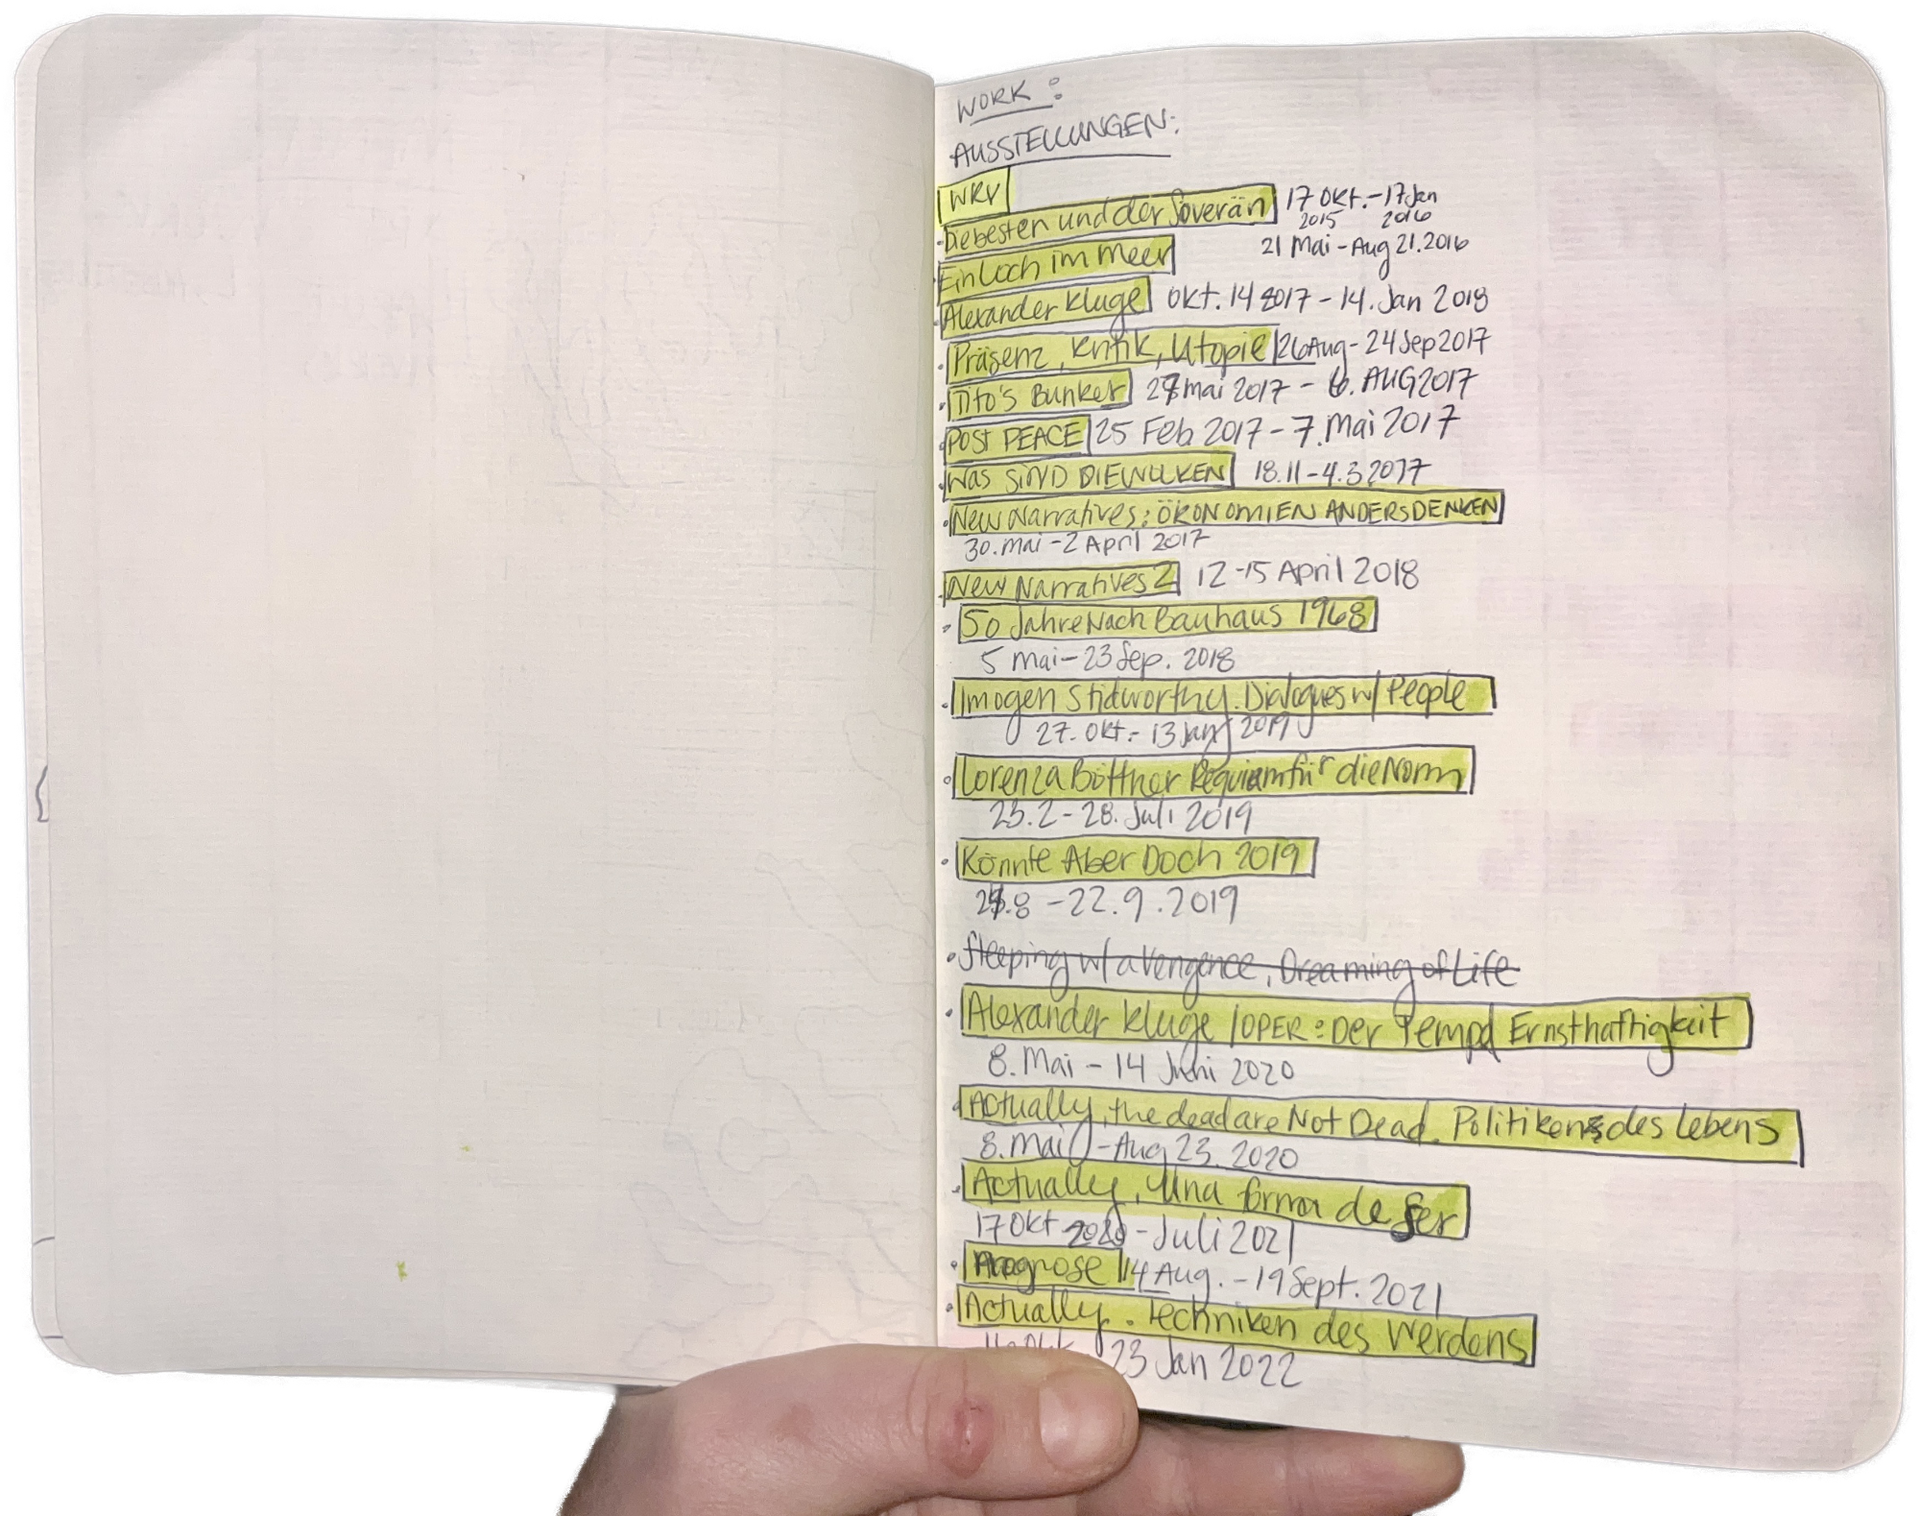 WORK:
AUSSTELLUNGEN:
WKV
• Die besten und der Soverän 17 Okt. - 17 Jan
2015 2016
• Ein Loch im Meer 21 Mai - Aug 21. 2016
• Alexander Kluge Okt. 14 2017 - 14. Jan 2018
• Präsenz, Kritik, Utopie 26 Aug - 24 Sep 2017
• Tito's Bunker 27 Mai 2017 - 6. AUG 2017
• POST PEACE 25 Feb 2017 - 7. Mai 2017
• WAS SIND DIE WOLKEN 18.11 - 4.3 2017
• New Narratives: ÖKONOMIEN ANDERS DENKEN
30. Mai - 2 April 2017
• New Narratives 2 12-15 April 2018
• 50 Jahre Nach Bauhaus 1968
5 Mai - 23 Sep. 2018
• Imogen Stidworthy. Dialogues w/ People
27. Okt. - 13 Jan 2019
• Lorenza Böttner Requiam für die Norm
23.2 - 28. Juli 2019
• Könnte Aber Doch 2019
.8 - 22.9.2019
• Sleeping w/ a Vengence, Dreaming of Life
• Alexander Kluge / OPER: Der Tempel Ernsthaftigkeit
8. Mai - 14 Juni 2020
• Actually, the dead are Not Dead. Politiken des Lebens
8. Mai - Aug 23. 2020
• Actually, Una forma de Ser
17 Okt 2020 - Juli 2021
• Prognose 14 Aug. - 19 Sept. 2021
• Actually. Techniken des Werdens
23 Jan 2022